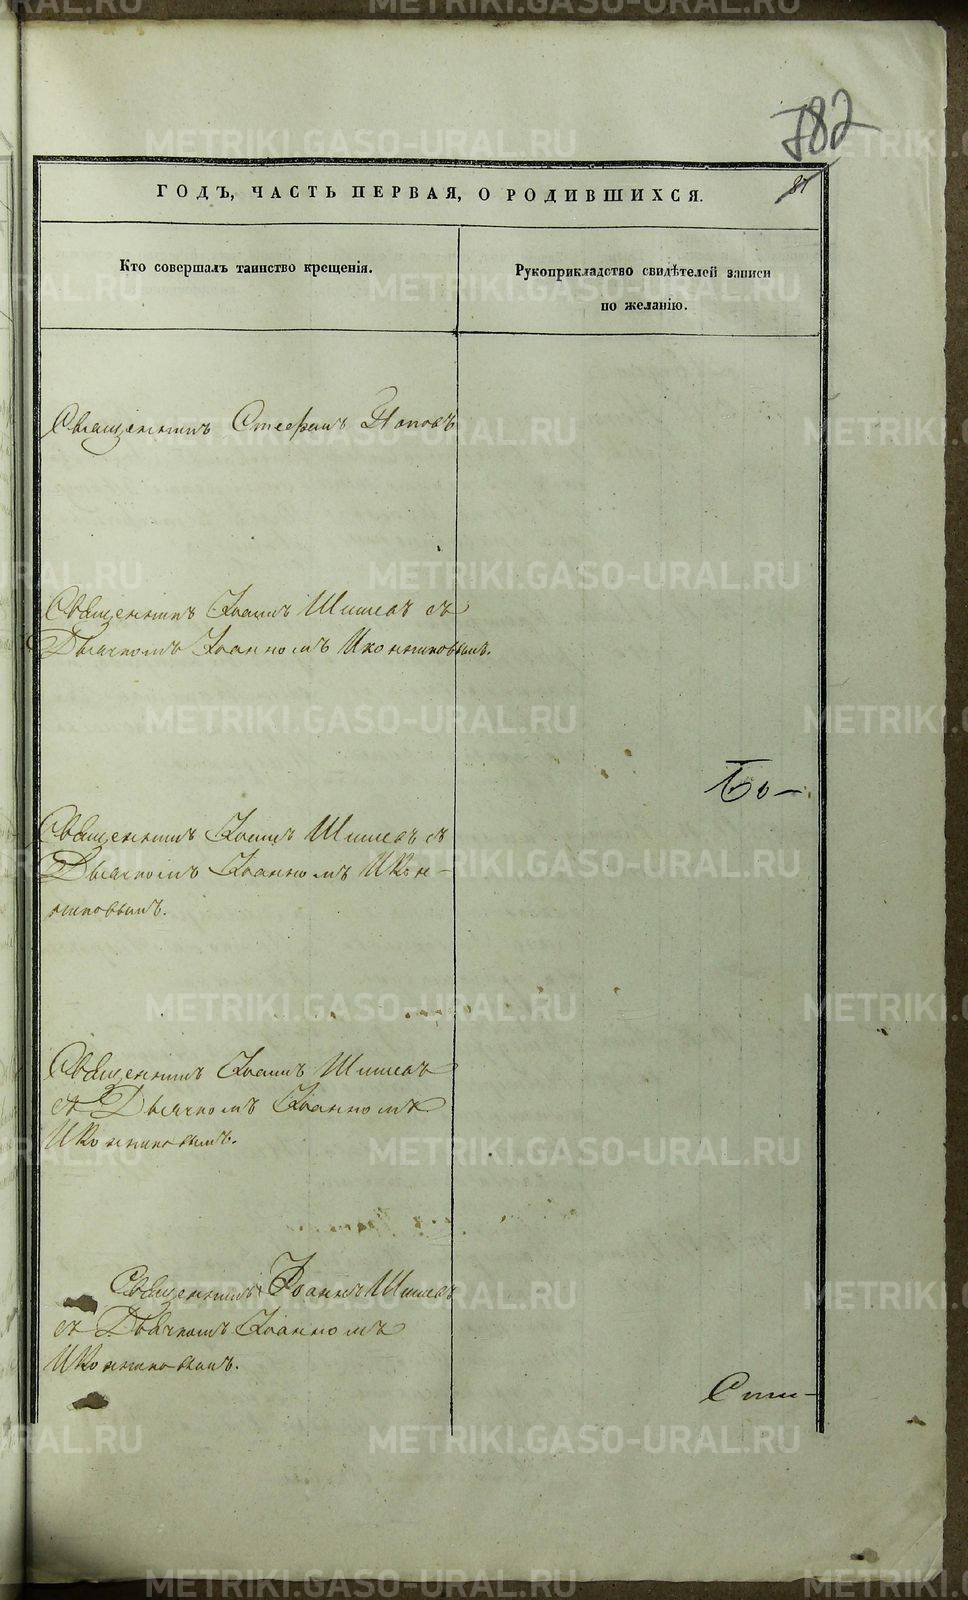 782
87
ГОДЪ, ЧАСТЬ ПЕРВАЯ, О РОДИВШИХСЯ.
Кто совершалъ таинство крещенія.
Рукоприкладство свидѣтелей записи
по желанію.
Священникъ Стефанъ Поповъ
Священникъ Іоаннъ Шишевъ съ
Дьячкомъ Іоанномъ Иконниковымъ.
Бо-
Священникъ Іоаннъ Шишевъ съ
Дьячкомъ Іоанномъ Икон-
никовымъ.
Священникъ Іоаннъ Шишевъ
съ Дьячкомъ Іоанномъ
Иконниковымъ.
Священникъ Іоаннъ Шишевъ
съ Дьячкомъ Іоанномъ
Иконниковымъ.
METRIKI.GASO-URAL.RU